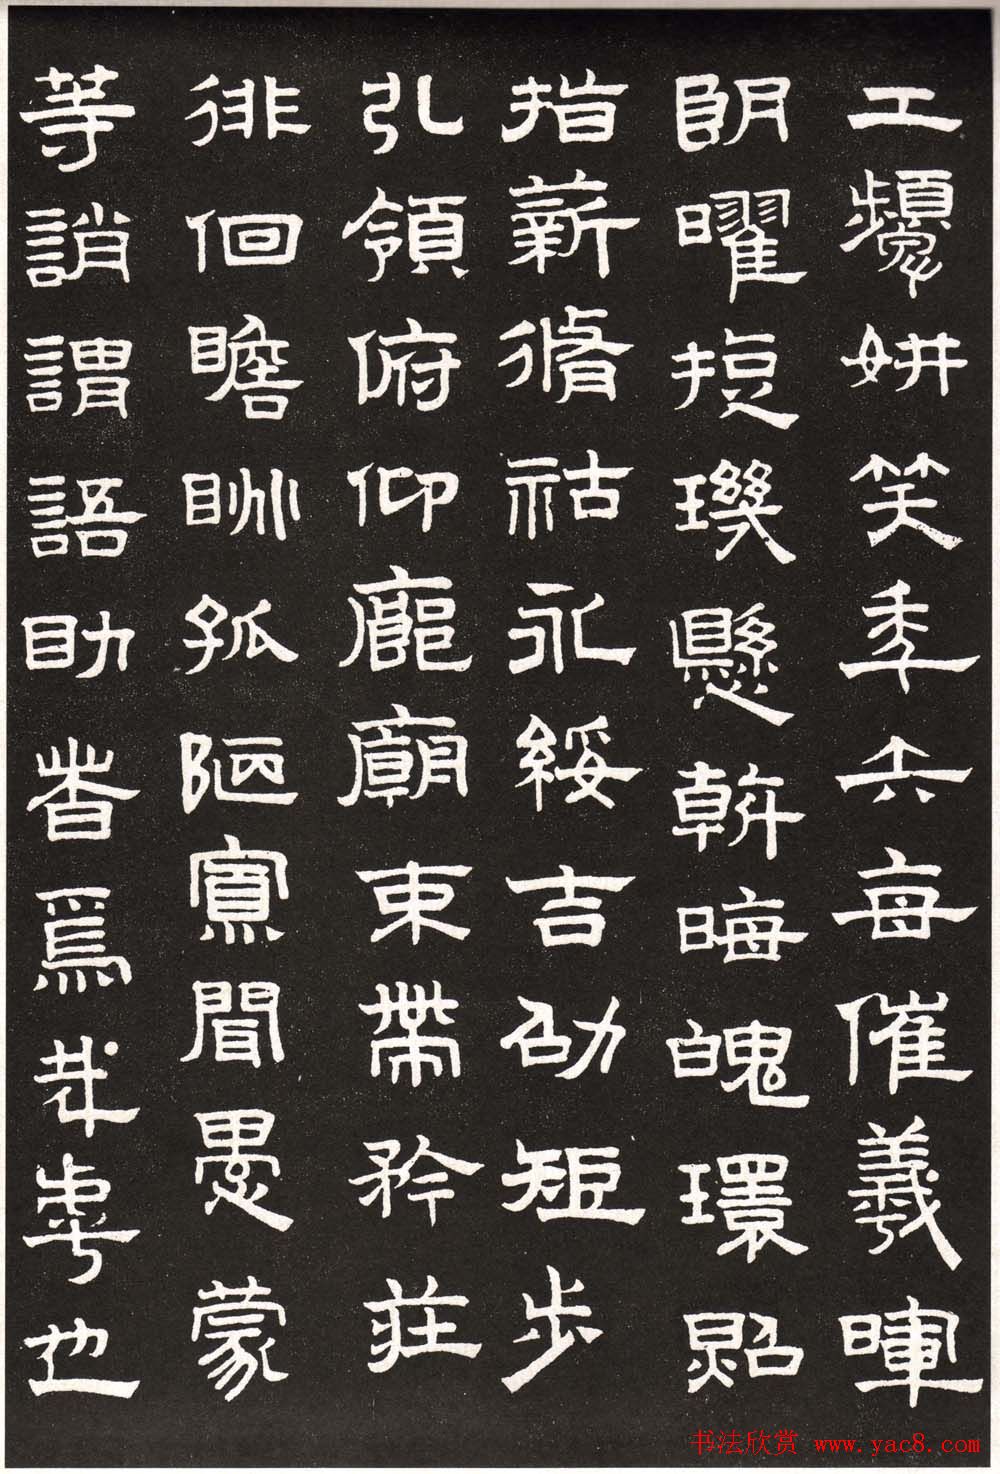 工顰妍笑年矢每催羲暉
朗曜旋璣懸斡晦魄環照
指薪脩祜永綏吉劭矩步
引領俯仰廊廟束帶矜莊
徘徊瞻眺孤陋寡聞愚蒙
等誚謂語助者焉哉乎也
书法欣赏 www.yac8.com